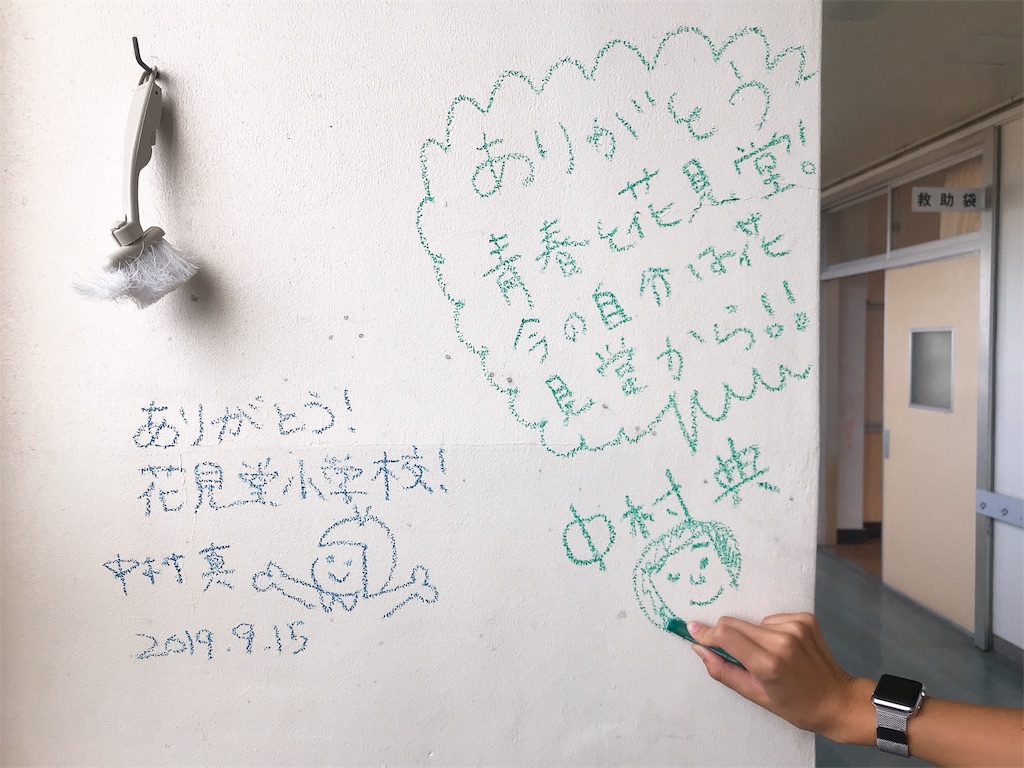 ありがとう
青春と花見堂!
今の自分は花
見堂から!!
中村 典
ありがとう!
花見堂小学校!
中村 真
2019.9.15
救助袋